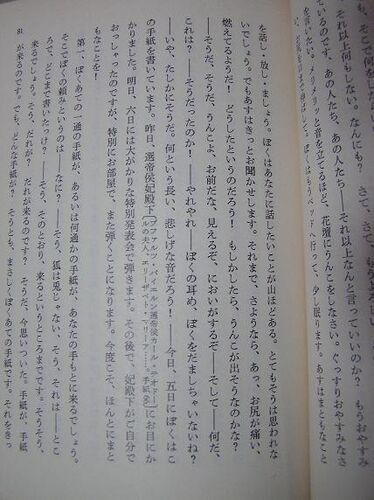 それ以上何もしない。なんにも？　さて、さて、もうよろしい
です。あの人たち、あの人たち――それ以上なんと言っていいのか？　もうおやすみ
をいい、メリメリッと音を立てるほど、花壇にうんこをしなさい。ぐっすりおやすみなさ
ぼくはもうベッドへ行って、少し眠ります。あすはまともなこと
を話し・放し・ましょう。ぼくはあなたに話したいことが山ほどある。とてもそうは思われな
いでしょう。でもあすはきっとお聞かせします。それまで、さようなら、あっ、お尻が痛い、
燃えてるようだ！　どうしたというのだろう！　もしかしたら、うんこが出そうなのかな？
――そうだ、そうだ、うんこよ、お前だな、見えるぞ、においがするぞ――そして――何だ、
これは？――そうだったのか！――やれやれ――ぼくの耳め、ぼくをだましちゃいないね？
――いや、たしかにそうだ。何という長い、悲しげな音だろう！――今日、五日にぼくはこ
の手紙を書いています。昨日、選帝侯妃殿下（ファルツ・バイエルン選帝侯カール・テオドー
ルの夫人　エリーザベト・マリーア――手紙
）にお目にか
かりました。明日、六日には大がかりな特別発表会で弾きます。その後で、妃殿下がご自分で
おっしゃったのですが、特別にお部屋で、また弾くことになります。今度こそ、ほんとにまと
もなことを！
第一、ぼくあての一通の手紙が、あるいは何通かの手紙が、あなたの手もとに来るでしょう。
そこでぼくの頼みというのは――なに？――そう、狐は兎じゃない、そう、それは――とこ
ろで、どこまで書いたっけ？――そう、そのとおり、来るというところまでです。そうそう、
来るでしょう。そう、だれが？――だれが来るのです？――そうだ、今思いついた。手紙が、手紙
が来るのです。でも、どんな手紙が？　そうとも、まさしくぼくあての手紙です。それをきっ
81